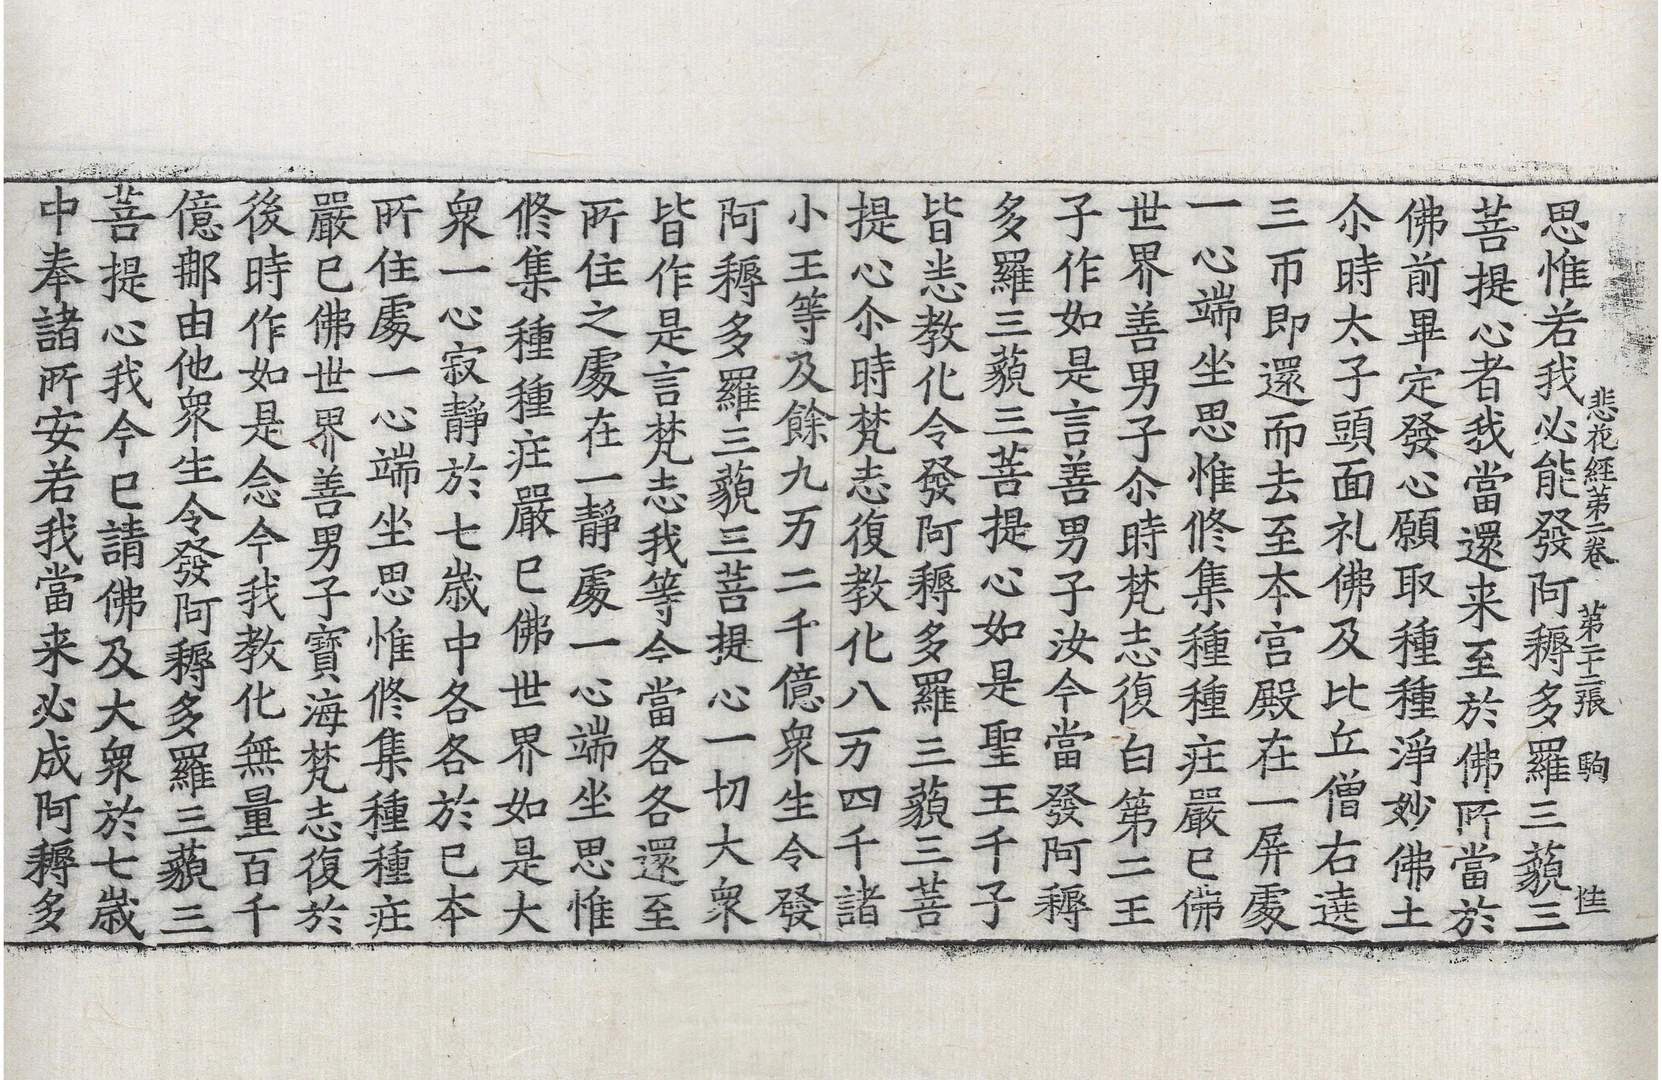 悲花經第二卷　第二十二張　駒
思惟若我必能發阿耨多羅三藐三
菩提心者我當還来至於佛所當於
佛前畢定發心願取種種淨妙佛土
尒時太子頭面礼佛及比丘僧右遶
三帀即還而去至本宫殿在一屏處
一心端坐思惟修集種種庄嚴已佛
世界善男子尒時梵志復白第二王
子作如是言善男子汝今當發阿耨
多羅三藐三菩提心如是聖王千子
皆悉教化令發阿耨多羅三藐三菩
提心尒時梵志復教化八万四千諸
小王等及餘九万二千億衆生令發
阿耨多羅三藐三菩提心一切大衆
皆作是言梵志我等今當各各還至
所住之處在一靜處一心端坐思惟
修集種種庄嚴已佛世界如是大
衆一心寂靜於七歳中各各於已本
所住處一心端坐思惟修集種種庄
嚴已佛世界善男子寶海梵志復於
後時作如是念今我教化無量百千
億那由他衆生令發阿耨多羅三藐三
菩提心我今已請佛及大衆於七歳
中奉諸所安若我當来必成阿耨多